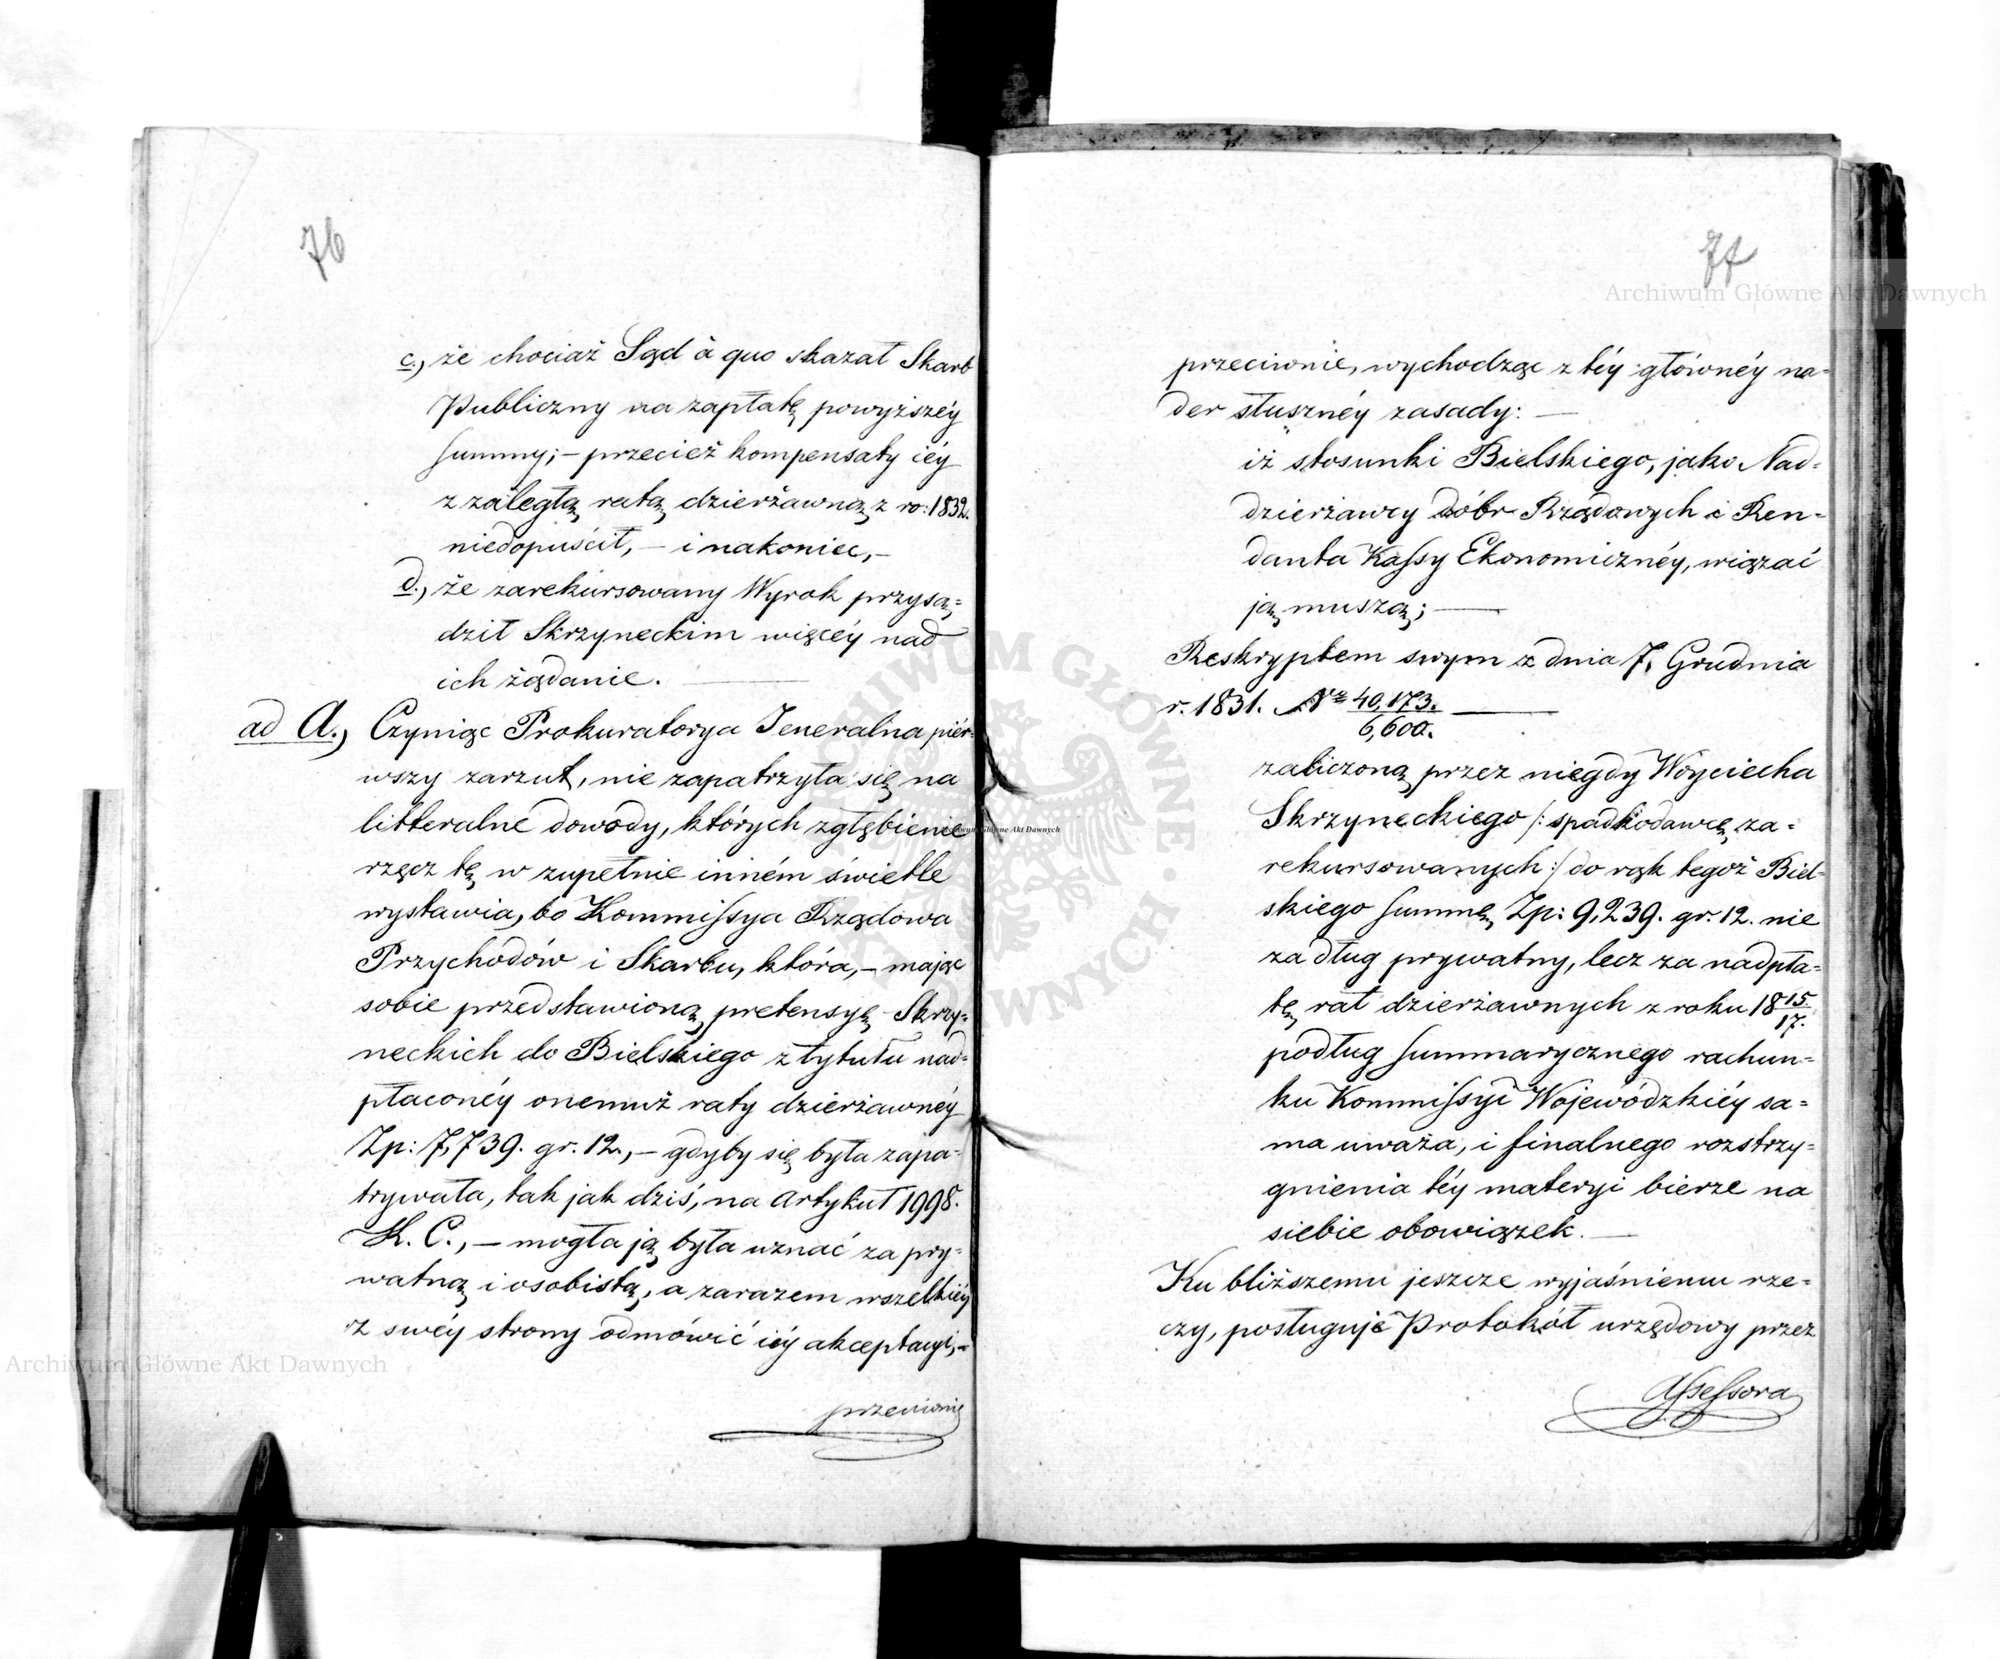 76
c., że chociaż Sąd à quo skazał Skarb
Publiczny na zapłatę powyższéy
summy; – przecież kompensaty iéy
z zaległą ratą dzierżawną z ro: 1832.
niedopuścił, – i nakoniec, –
d., że zarekursowany Wyrok przysą=
dził Skrzyneckim więcéy nad
ich żądanie.
ad A., Czyniąc Prokuratorya Jeneralna piér=
wszy zarzut, nie zapatrzyła się na
litteralne dowody, których zgłębienie
rzęcz tę w zupełnie inném świetle
wystawia, bo Kommissya Rządowa
Przychodów i Skarbu, która, – mając
sobie przedstawioną pretensyę Skrzy=
neckich do Bielskiego z tytułu nad=
płaconéy onemuż raty dzierżawnéy
Zp: 7,739. gr. 12., – gdyby się była zapa=
trywała, tak jak dziś, na Artykuł 1998.
K. C., – mogła ją była uznać za pry=
watną i osobistą, a zarazem wszelkiéy
z swéy strony odmówić iéy akceptacyi, –
przeciwnie
77
przeciwnie, wychodząc z téy głównéy na=
der słusznéy zasady: –
iż stosunki Bielskiego, jako Nad=
dzierżawcy dóbr Rządowych i Ren=
danta Kassy Ekonomicznéy, wiązać
ją muszą; –
Reskryptem swym z dnia 7. Grudnia
r. 1831. Nr 40,173. –
6,600.
zaliczoną przez niegdy Woyciecha
Skrzyneckiego /: spadkodawcę za=
rekursowanych :/ do rąk tegoż Biel=
skiego summę Zp: 9,239. gr. 12. nie
za dług prywatny, lecz za nadpła=
tę rat dzierżawnych z roku 1815/17.
podług summarycznego rachun=
ku Kommissyi Wojewódzkiéy sa=
ma uważa, i finalnego rozstrzy=
gnienia téy materyi bierze na
siebie obowiązek. –
Ku bliższemu jeszcze wyjaśnieniu rze=
czy, posługuje Protokół urzędowy przez
Assessora
Archiwum Główne Akt Dawnych
Archiwum Główne Akt Dawnych
Archiwum Główne Akt Dawnych
ARCHIWUM GŁÓWNE AKT DAWNYCH